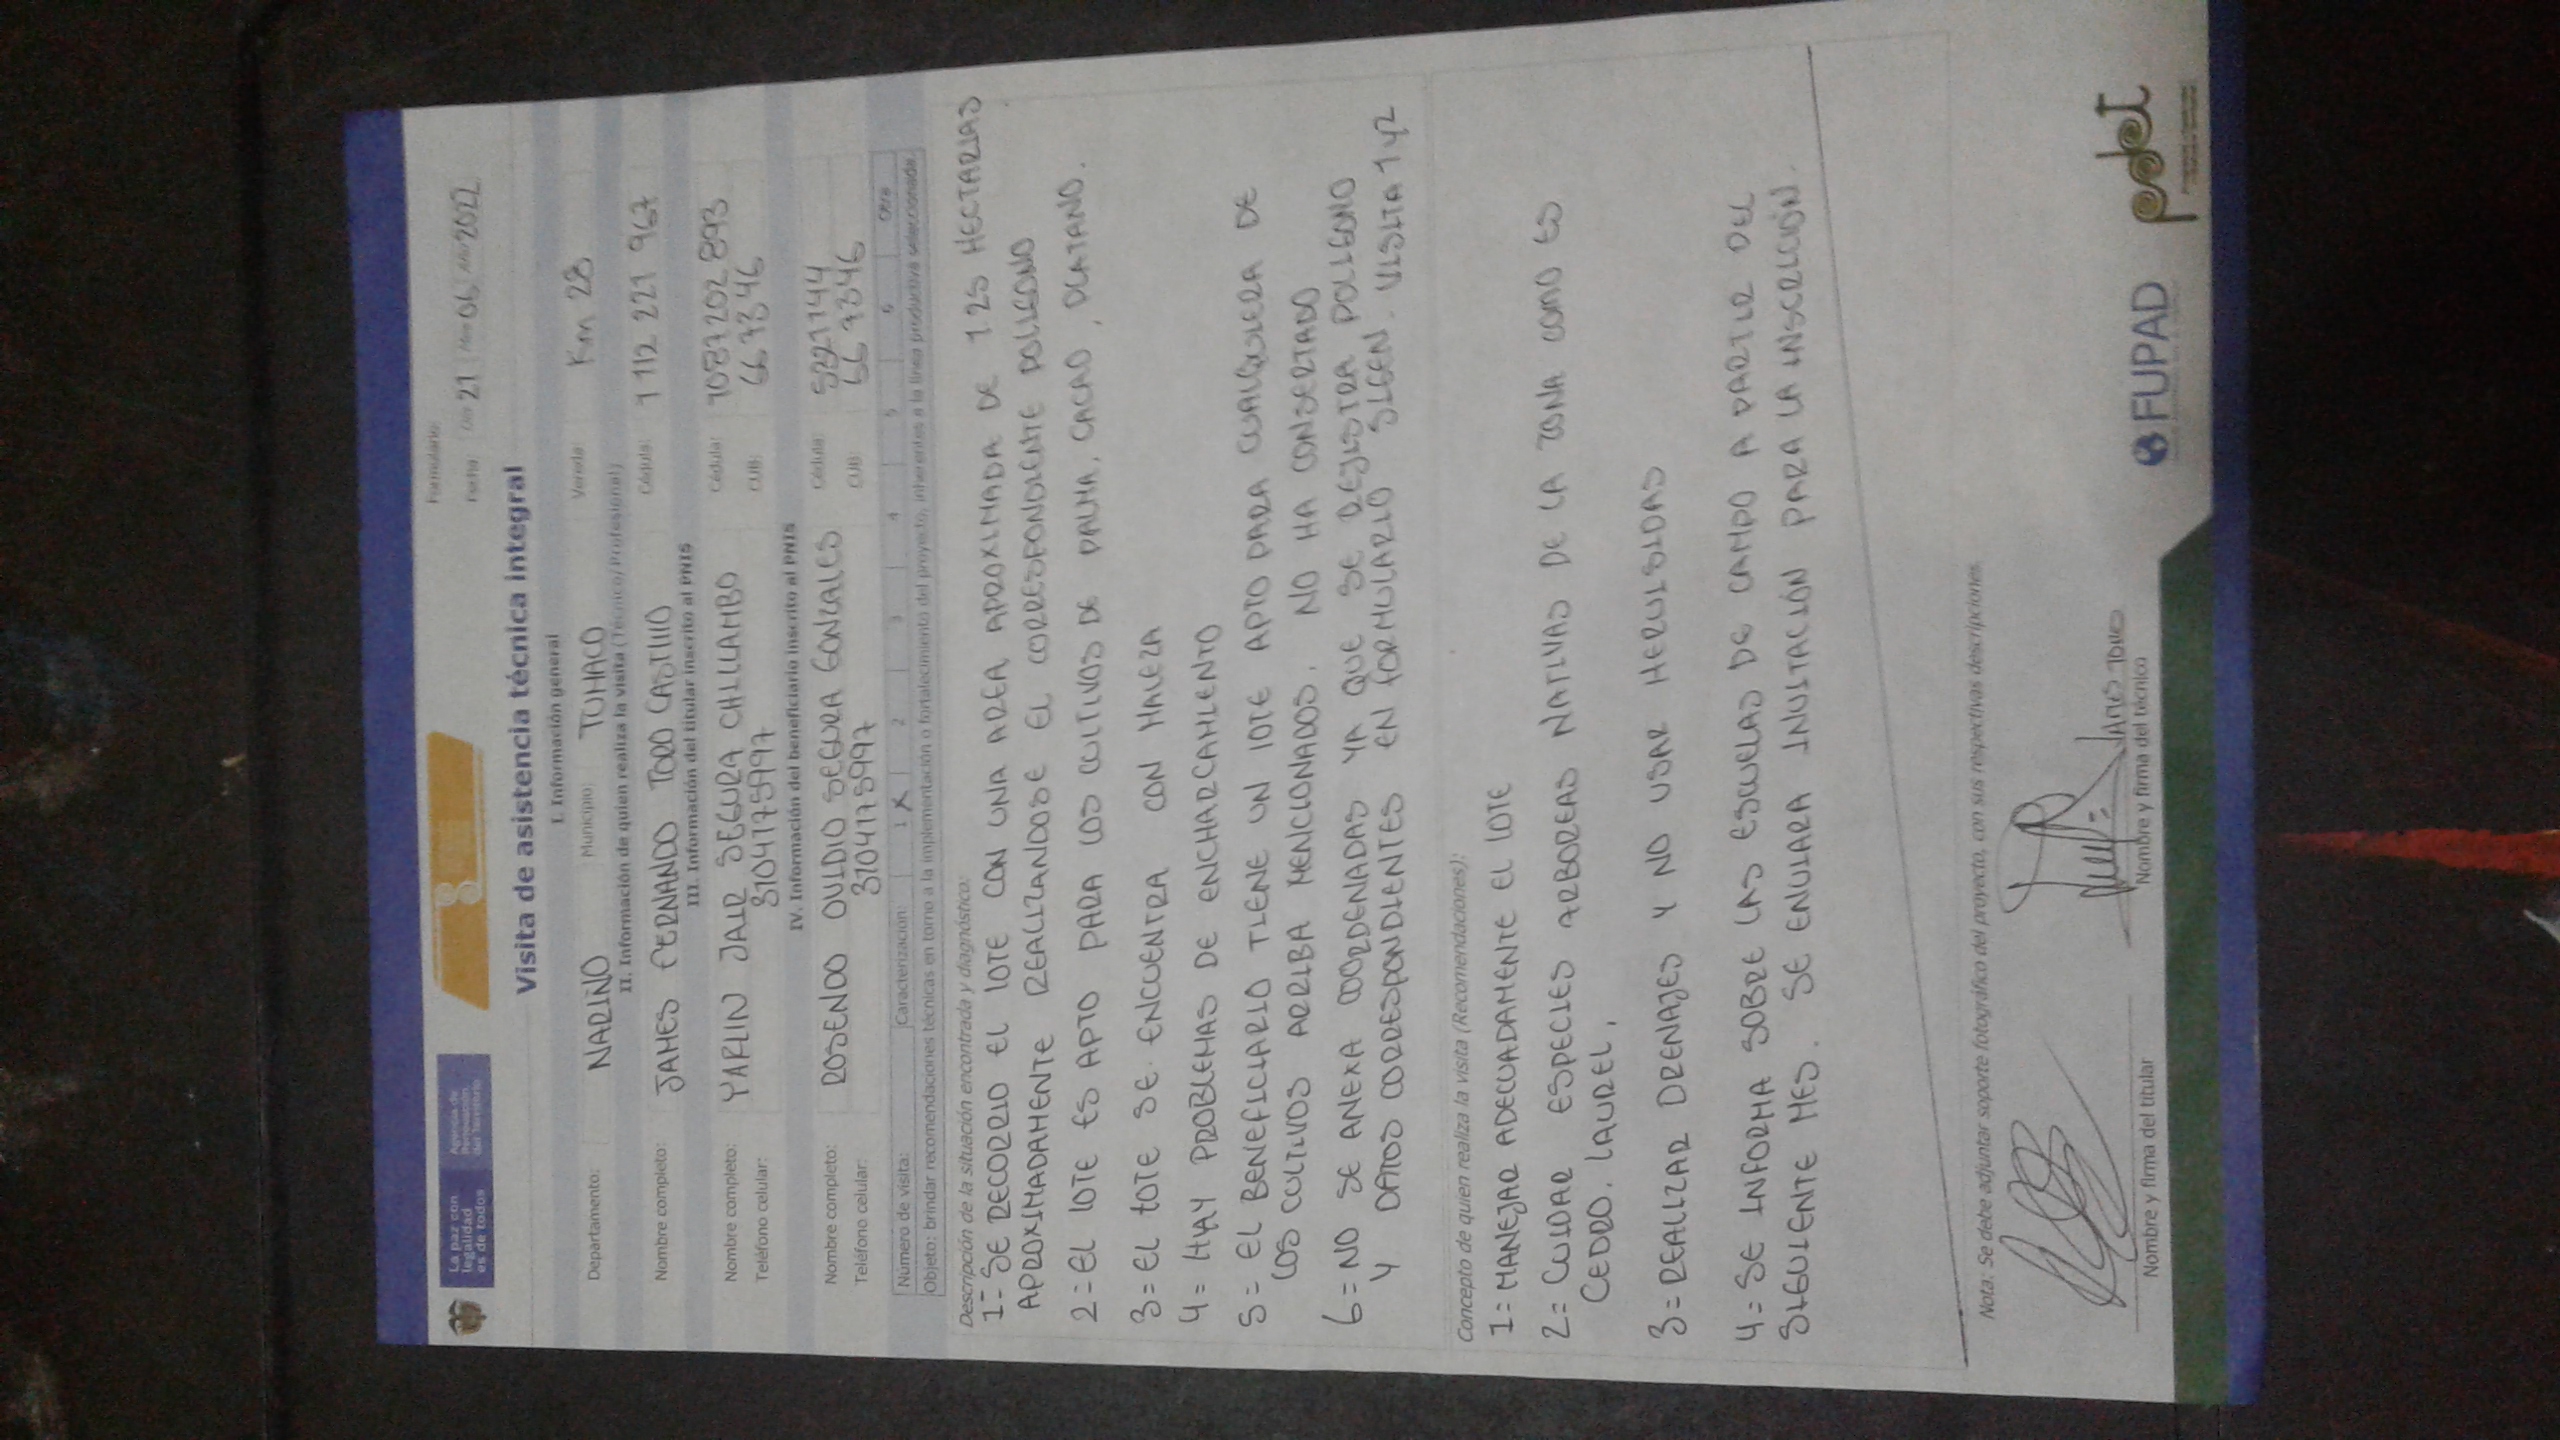 La paz con
legalidad
es de todos
Agencia de
Renovación
del Territorio
Formulario:
Fecha: Día 21 Mes 06 Año 2022
Visita de asistencia técnica integral
I. Información general
Departamento: NARIÑO Municipio: TUMACO Vereda: Km 28
II. Información de quien realiza la visita (Técnico/Profesional)
Nombre completo: JAMES FERNANDO TORO CASTIllO Cédula: 1 112 221 967
III. Información del titular inscrito al PNIS
Nombre completo: YARLIN JAIR SEGURA CHILLAMBO Cédula: 1087202893
Teléfono celular: 3104175997 CUB: 667346
IV. Información del beneficiario inscrito al PNIS
Nombre completo: ROSENDO OUIDIO SEGURA GONZALES Cédula: 5321744
Teléfono celular: 3104175997 CUB: 667346
Número de visita: Caracterización: 1 X 2 3 4 5 6 Otra
Objeto: brindar recomendaciones técnicas en torno a la implementación o fortalecimiento del proyecto, inherentes a la línea productiva seleccionada.
Descripción de la situación encontrada y diagnóstico:
1= SE RECORRIO EL lOTE CON UNA AREA APROXIMADA DE 1.25 HECTARIAS
APROXIMADAMENTE REALIZANDOSE EL CORRESPONDIENTE POLIGONO
2= El lOTE ES APTO PARA LOS CULTIVOS DE PALMA, CACAO, PLATANO.
3= El lOTE SE ENCUENTRA CON MALEZA
4= HAY PROBLEMAS DE ENCHARCAMIENTO
5= El BENEFICIARIO TIENE UN lOTE APTO PARA CUALQUIERA DE
LOS CULTIVOS ARRIBA MENCIONADOS. NO HA CONSERTADO
6= NO SE ANEXA COORDENADAS YA QUE SE REJISTRA POLIGONO
Y DATOS CORRESPONDIENTES EN FORMULARIO SIGEN. VISITA 1 Y 2
Concepto de quien realiza la visita (Recomendaciones):
1= MANEJAR ADECUADAMENTE El lOTE
2= CUIDAR ESPECIES ARBOREAS NATIVAS DE LA ZONA COMO ES
CEDRO, LAUREL.
3= REALIZAR DRENAJES Y NO USAR HERVISIDAS
4= SE INFORMA SOBRE LAS ESCUELAS DE CAMPO A PARTIR DEL
SIGUIENTE MES. SE ENVIARA INVITACIÓN PARA LA INSCRICIÓN.
Nota: Se debe adjuntar soporte fotográfico del proyecto, con sus respectivas descripciones.
JAMES TORO
Nombre y firma del titular
Nombre y firma del técnico
FUPAD
pdet